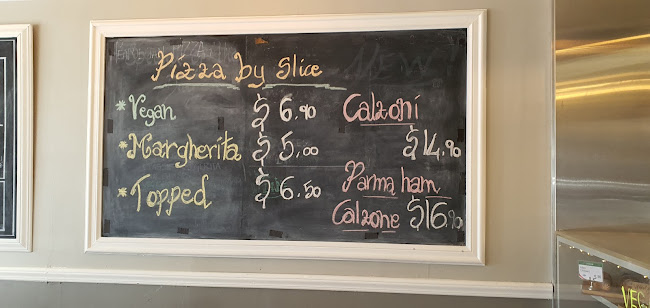 Pizza by Slice
* Vegan $ 6.90
* Margherita $ 5,00
* Topped $ 6.50
Calzoni
$14.90
Parma ham
Calzone $16.90
VEG